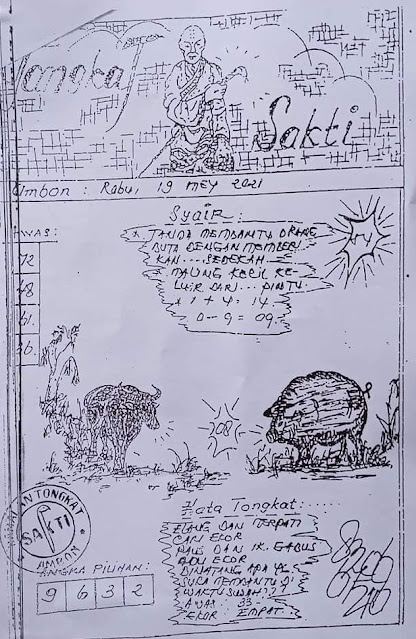 Tongkat
Sakti
Ambon : Rabu, 19 MEY 2021
Syair:
WAS:
72
48
61.
36.
* JANDA MEMBANTU ORANG
BUTA DENGAN MEMBERI
KAN... SEDEKAH
* MALING KECIL KE
LUAR DARI... PINTU.
* 1 + 4 = 14.
0 - 9 = 09.
Kata Tongkat......
ELANG DAN MERPATI
CARI EKOR
PAUS DAN IK. GABUS
ADU EKOR
BINATANG APA YG
SUKA MEMBANTU DI
WAKTU SUSAH ??
AWAS : 33
EKOR EMPAT.
TONGKAT
SAKTI
AMBON
ANGKA PILIHAN:
9 6 3 2